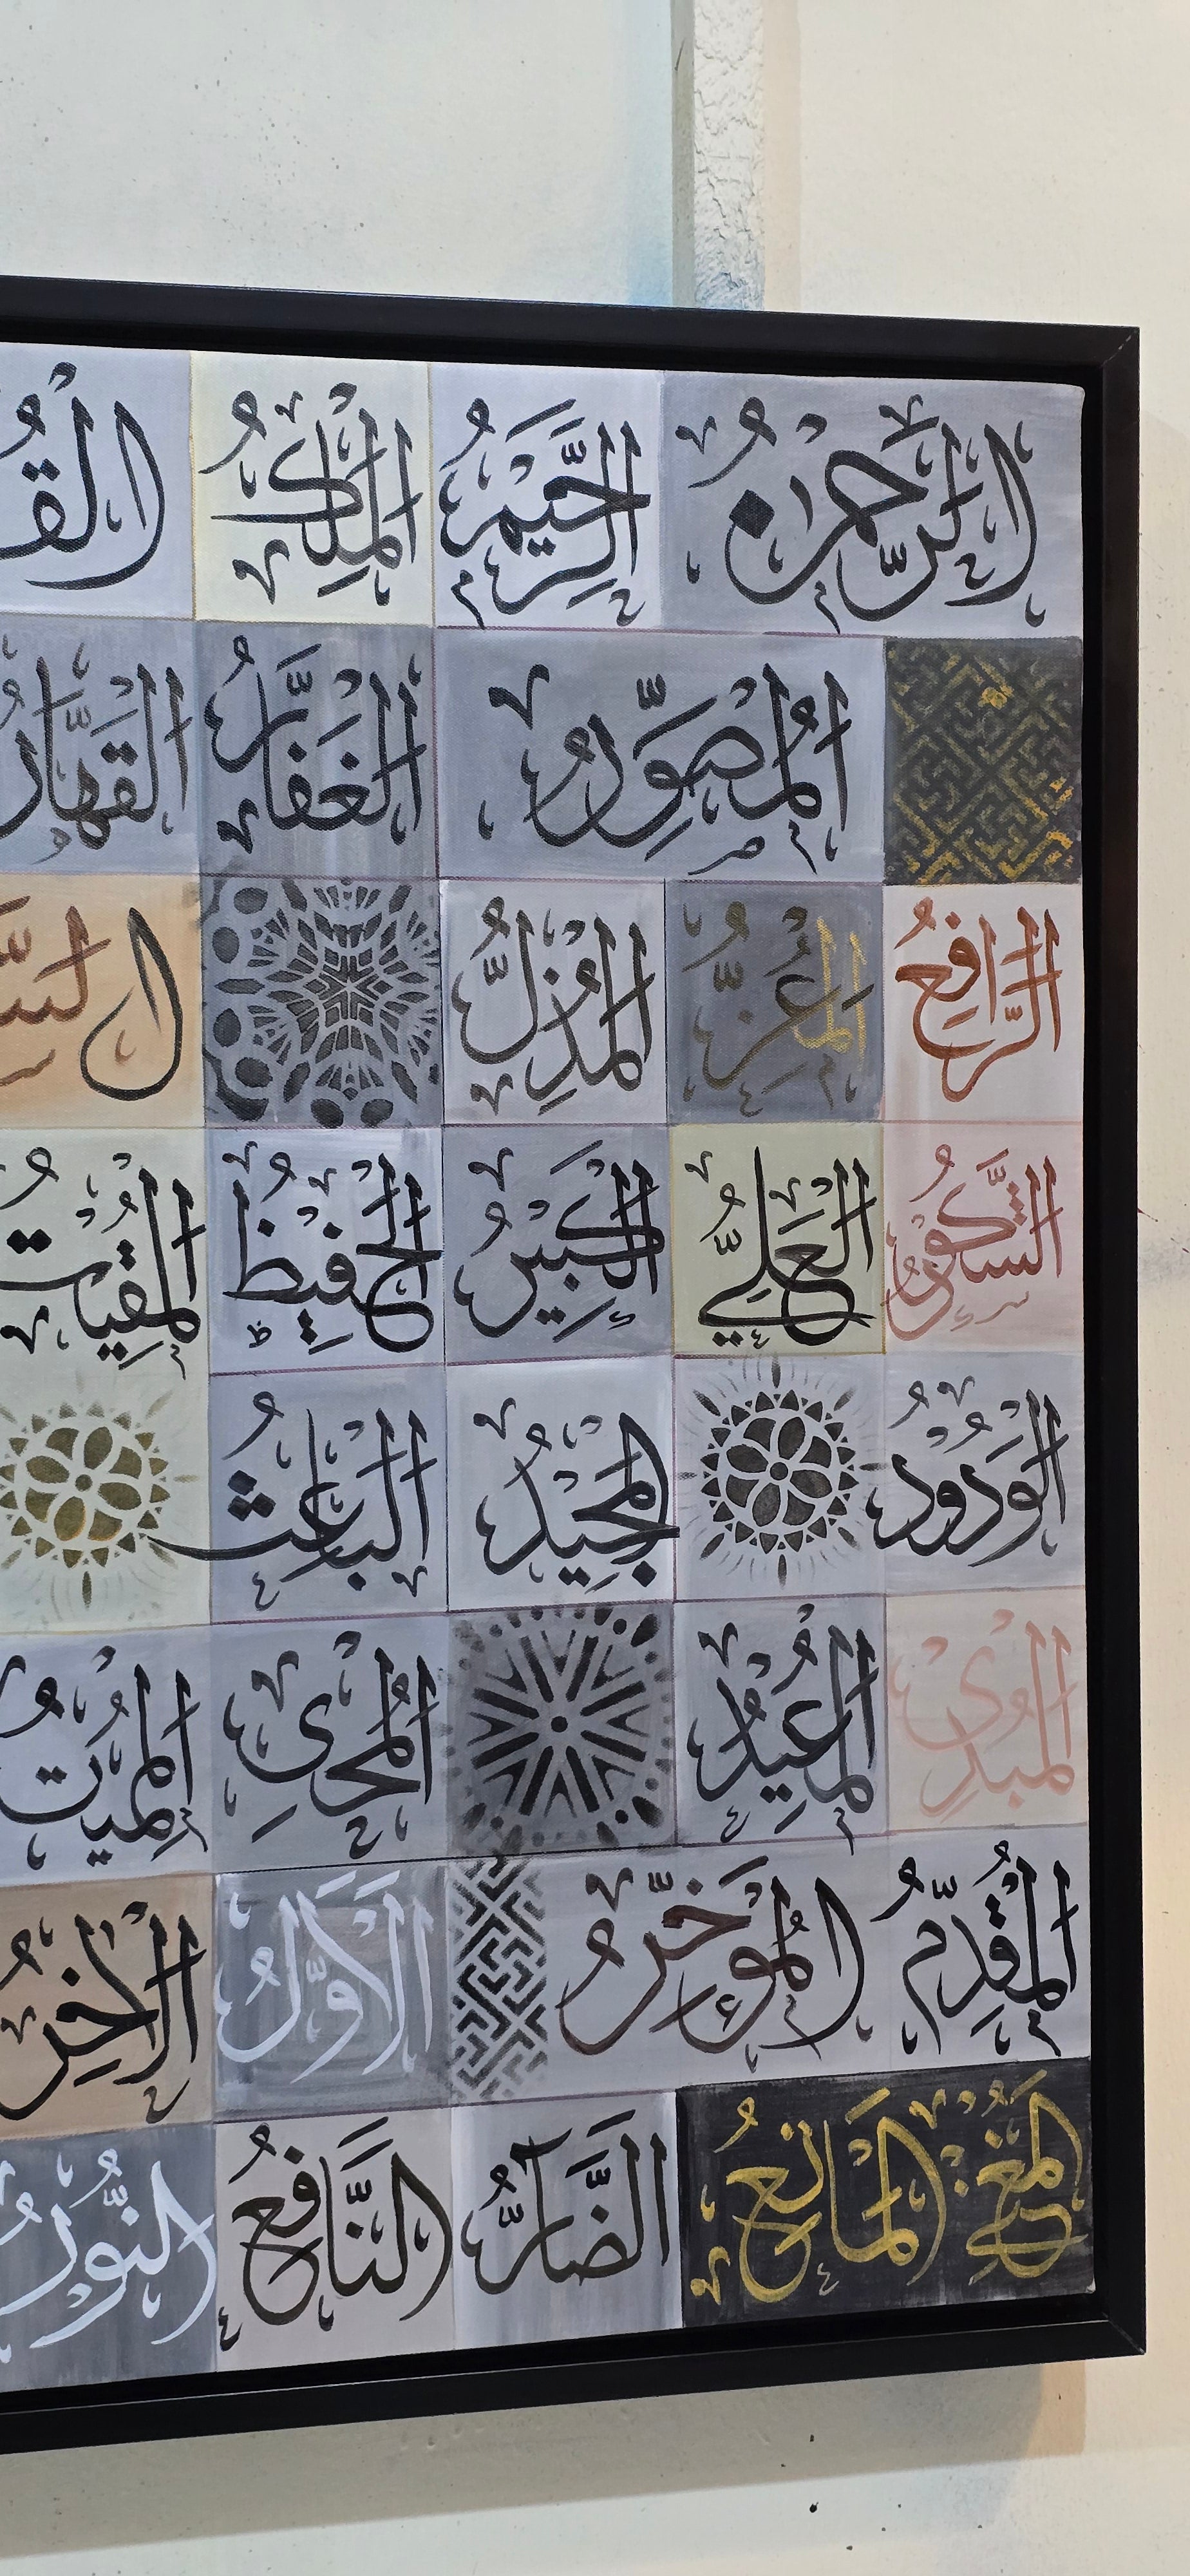 الرَّحْمٰنُ الرَّحِيْمُ الْمَلِكُ
الْمُصَوِّرُ الْغَفَّارُ الْقَهَّارُ
الرَّافِعُ الْمُعِزُّ الْمُذِلُّ
الشَّكُوْرُ الْعَلِيُّ الْكَبِيْرُ الْحَفِيْظُ الْمُقِيْتُ
الْوَدُوْدُ الْمَجِيْدُ الْبَاعِثُ
الْمُبْدِئُ الْمُعِيْدُ الْمُحْيِي الْمُمِيْتُ
الْمُقَدِّمُ الْمُؤَخِّرُ الْأَوَّلُ الْآخِرُ
الْمُغْنِي الْمَانِعُ الضَّارُّ النَّافِعُ النُّوْرُ